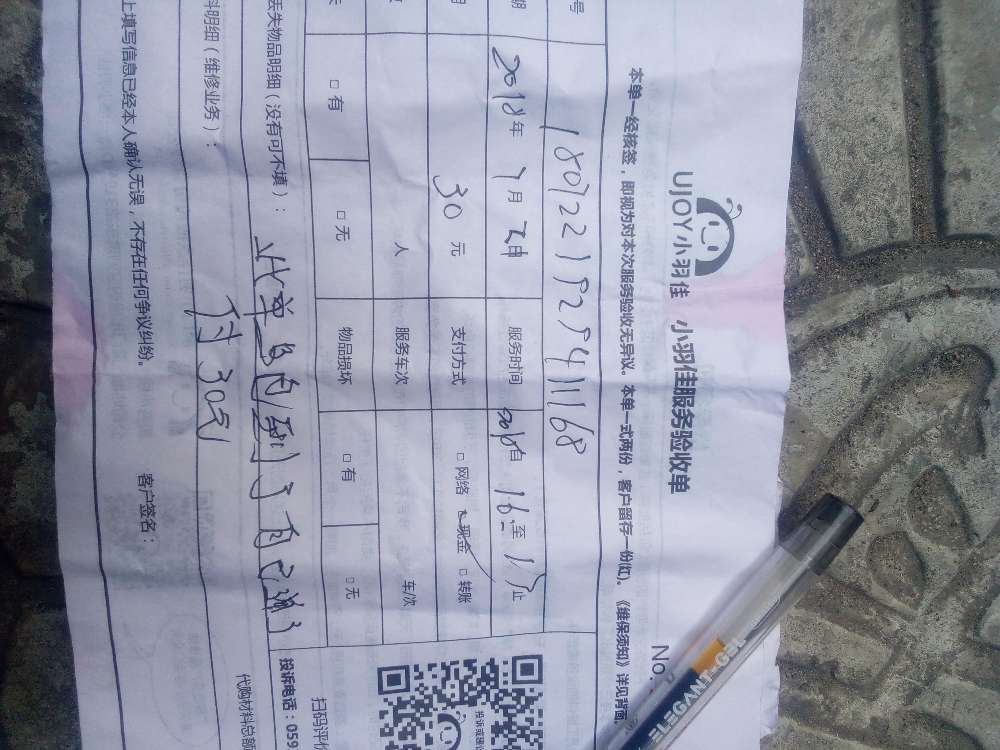 UJOY小羽佳 小羽佳服务验收单
本单一经核签，即视为对本次服务验收无异议。本单一式两份，客户留存一份(红)。《维保须知》详见背面
No
号 180722192941168
期 2018年 月 日 服务时间 自 16: 至 止
30元 支付方式 □网络 现金 □转账
人 服务车次 车/次
□有 □无 物品损坏 □有 □无
丢失物品明细（没有可不填）：
料明细（维修业务）：
付30元
上填写信息已经本人确认无误，不存在任何争议纠纷。 客户签名：
扫码评价
投诉电话：059
代购材料总额
ELEGANT-GEL